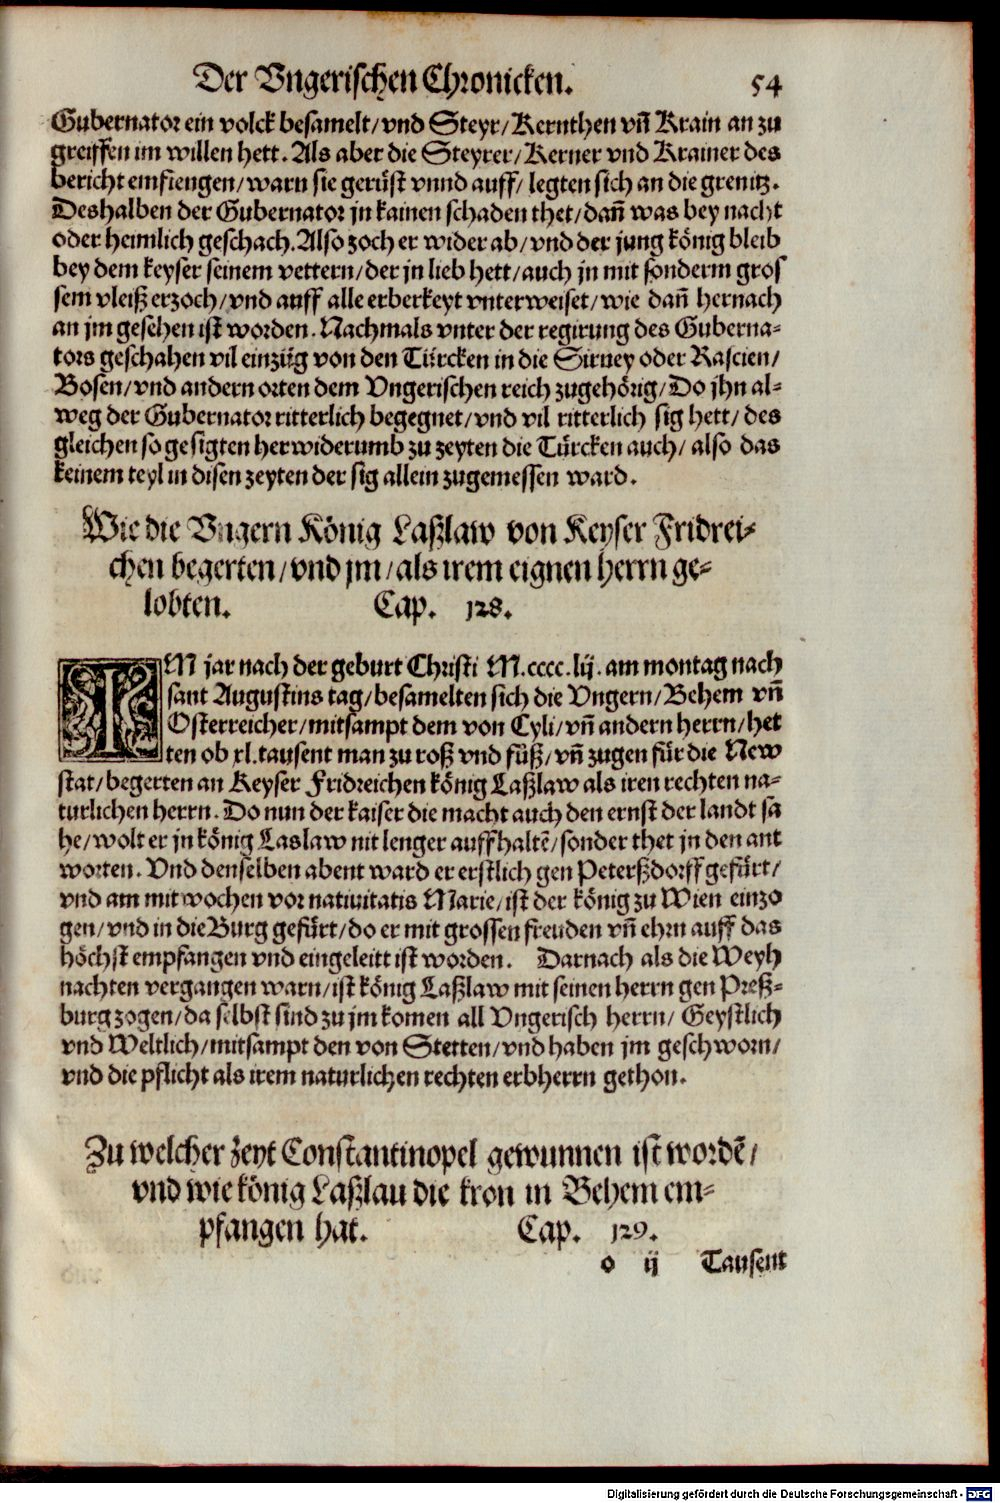 Der Vngerischen Chronicken. 54
Gubernator ein volck besamelt/vnd Steyr/Kernthen vñ Krain an zu
greiffen im willen hett. Als aber die Steyrer/Kerner vnd Krainer des
bericht emfiengen/warn sie gerüst vnnd auff/legten sich an die grenitz.
Deshalben der Gubernator jn kainen schaden thet/dañ was bey nacht
oder heimlich geschach. Also zoch er wider ab/vnd der jung könig bleib
bey dem keyser seinem vettern/der jn lieb hett/auch jn mit sonderm gros
sem vleiß erzoch/vnd auff alle erberkeyt vnterweiset/wie dañ hernach
an jm gesehen ist worden. Nachmals vnter der regirung des Guberna-
tors geschahen vil einzüg von den Türcken in die Siruey oder Rascien/
Bosen/vnd andern orten dem Vngerischen reich zugehörig/Do jhn al-
weg der Gubernator ritterlich begegnet/vnd vil ritterlich sig hett/des
gleichen so gesigten herwiderumb zu zeyten die Türcken auch/also das
keinem teyl in disen zeyten der sig allein zugemessen ward.
Wie die Vngern König Laßlaw von Keyser Fridrei-
chen begerten/vnd jm/als irem eignen herrn ge-
lobten. Cap. 128.
IM jar nach der geburt Christi M.cccc.lij. am montag nach
sant Augustins tag/besamelten sich die Vngern/Behem vñ
Osterreicher/mitsampt dem von Cyli/vñ andern herrn/het
ten ob xl.tausent man zu roß vnd füß/vñ zugen für die New
stat/begerten an Keyser Fridreichen könig Laßlaw als iren rechten na-
turlichen herrn. Do nun der kaiser die macht auch den ernst der landt sa
he/wolt er jn könig Laslaw nit lenger auffhaltē/sonder thet jn den ant
worten. Vnd denselben abent ward er erstlich gen Peterßdorff gefürt/
vnd am mitwochen vor natiuitatis Marie/ist der könig zu Wien einzo
gen/vnd in die Burg gefürt/do er mit grossen freuden vñ ehrn auff das
höchst empfangen vnd eingeleitt ist worden. Darnach als die Weyh
nachten vergangen warn/ist könig Laßlaw mit seinen herrn gen Preß-
burg zogen/da selbst sind zu jm komen all Vngerisch herrn/Geystlich
vnd Weltlich/mitsampt den von Stetten/vnd haben jm geschworn/
vnd die pflicht als irem naturlichen rechten erbherrn gethon.
Zu welcher zeyt Constantinopel gewunnen ist wordē/
vnd wie könig Laßlau die kron in Behem em-
pfangen hat. Cap. 129.
o ij Tausent
Digitalisierung gefördert durch die Deutsche Forschungsgemeinschaft - DFG